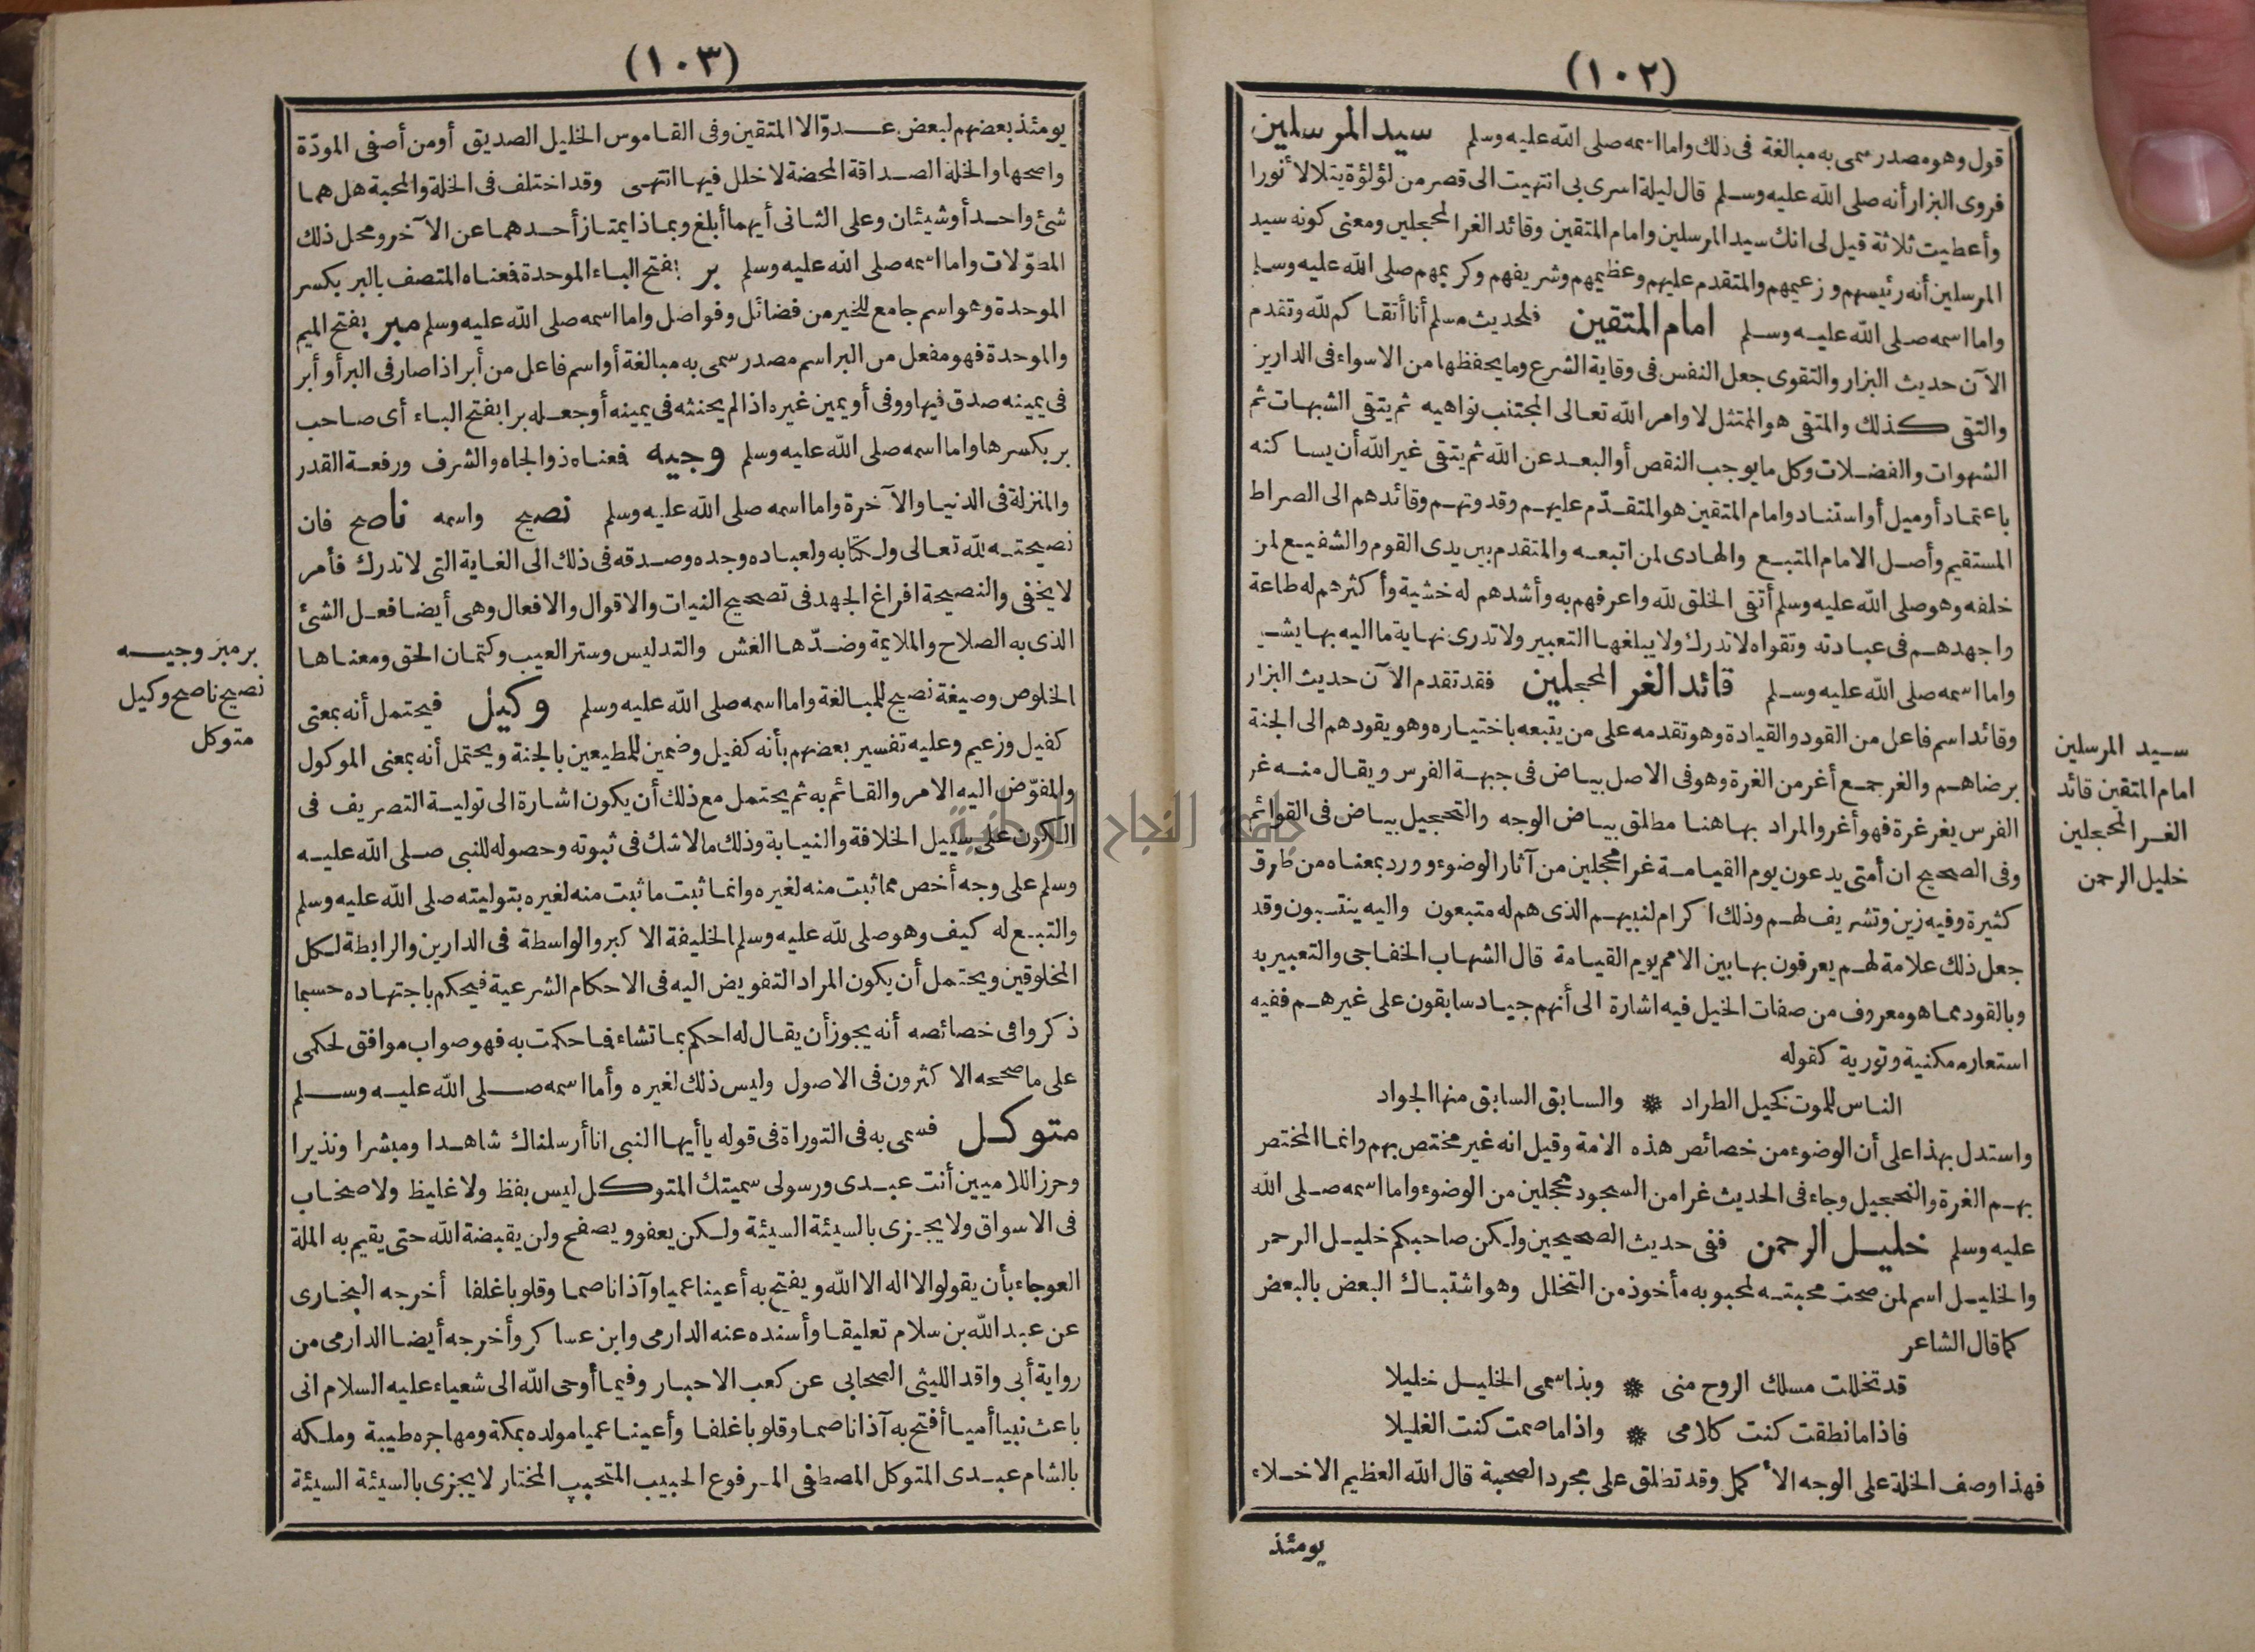 (١٠٢)
قول وهو مصدر سمى به مبالغة فى ذلك واما اسمه صلى الله عليه وسلم سيد المرسلين
فروى البزار أنه صلى الله عليه وسلم قال ليلة اسرى بى انتهيت الى قصر من لؤلؤة يتلالأ نورا
وأعطيت ثلاثة قيل لى انك سيد المرسلين وامام المتقين وقائد الغر المحجلين ومعنى كونه سيد
المرسلين أنه رئيسهم وزعيمهم والمتقدم عليهم وعظيمهم وشريفهم وكريمهم صلى الله عليه وسلم
واما اسمه صلى الله عليه وسلم امام المتقين فلحديث مسلم أنا أتقاكم لله وتقدم
الآن حديث البزار والتقوى جعل النفس فى وقاية الشرع وما يحفظها من الاسواء فى الدارين
والتقى كذلك والمتقى هو الممتثل لاوامر الله تعالى المجتنب نواهيه ثم يتقى الشبهات ثم
الشهوات والفضلات وكل ما يوجب النقص أو البعد عن الله ثم يتقى غير الله أن يساكنه
باعتماد أو ميل أو استناد وامام المتقين هو المتقدّم عليهم وقدوتهم وقائدهم الى الصراط
المستقيم وأصل الامام المتبع والهادى لمن اتبعه والمتقدم بين يدى القوم والشفيع لمن
خلفه وهو صلى الله عليه وسلم أتقى الخلق لله واعرفهم به وأشدهم له خشية وأكثرهم له طاعة
واجهدهم فى عبادته وتقواه لا تدرك ولا يبلغها التعبير ولا تدرى نهاية ما اليه بها يشير
واما اسمه صلى الله عليه وسلم قائد الغر المحجلين فقد تقدم الآن حديث البزار
وقائد اسم فاعل من القود والقيادة وهو تقدمه على من يتبعه باختياره وهو يقودهم الى الجنة
برضاهم والغر جمع أغر من الغرة وهو فى الاصل بياض فى جبهة الفرس ويقال منه غر
الفرس يغر غرة فهو أغر والمراد بها هنا مطلق بياض الوجه والتحجيل بياض فى القوائم
وفى الصحيح ان أمتى يدعون يوم القيامة غرا محجلين من آثار الوضوء وورد بمعناه من طرق
كثيرة وفيه زين وتشريف لهم وذلك اكرام لنبيهم الذى هم له متبعون واليه ينتسبون وقد
جعل ذلك علامة لهم يعرفون بها بين الامم يوم القيامة قال الشهاب الخفاجى والتعبير به
وبالقود مما هو معروف من صفات الخيل فيه اشارة الى أنهم جياد سابقون على غيرهم ففيه
استعارة مكنية وتورية كقوله
الناس للموت كخيل الطراد * والسابق السابق منها الجواد
واستدل بهذا على أن الوضوء من خصائص هذه الامة وقيل انه غير مختص بهم وانما المختص
بهم الغرة والتحجيل وجاء فى الحديث غرا من السجود محجلين من الوضوء واما اسمه صلى الله
عليه وسلم خليل الرحمن ففى حديث الصحيحين ولكن صاحبكم خليل الرحمن
والخليل اسم لمن صحت محبته لمحبوبه مأخوذ من التخلل وهو اشتباك البعض بالبعض
كما قال الشاعر
قد تخللت مسلك الروح منى * وبذا سمى الخليل خليلا
فاذا ما نطقت كنت كلامى * واذا ما صمت كنت الغليلا
فهذا وصف الخلة على الوجه الأكمل وقد تطلق على مجرد الصحبة قال الله العظيم الاخلاء
يومئذ
سيد المرسلين
امام المتقين قائد
الغر المحجلين
خليل الرحمن
(١٠٣)
يومئذ بعضهم لبعض عدوّ الا المتقين وفى القاموس الخليل الصديق أو من أصفى المودّة
واصحها والخلة الصداقة المحضة لا خلل فيها انتهى وقد اختلف فى الخلة والمحبة هل هما
شئ واحد أو شيئان وعلى الثانى أيهما أبلغ وبماذا يمتاز أحدهما عن الآخر ومحل ذلك
المطوّلات واما اسمه صلى الله عليه وسلم بر بفتح الباء الموحدة فمعناه المتصف بالبر بكسر
الموحدة وهو اسم جامع للخير من فضائل وفواضل واما اسمه صلى الله عليه وسلم مبر بفتح الميم
والموحدة فهو مفعل من البر اسم مصدر سمى به مبالغة أو اسم فاعل من أبر اذا صار فى البر أو أبر
فى يمينه صدق فيها ووفى أو يمين غيره اذا لم يحنثه فى يمينه أو جعله برا بفتح الباء أى صاحب
بر بكسرها واما اسمه صلى الله عليه وسلم وجيه فمعناه ذو الجاه والشرف ورفعة القدر
والمنزلة فى الدنيا والآخرة واما اسمه صلى الله عليه وسلم نصيح واسمه ناصح فان
نصيحته لله تعالى ولكتابه ولعباده وجده وصدقه فى ذلك الى الغاية التى لا تدرك فأمر
لا يخفى والنصيحة افراغ الجهد فى تصحيح النيات والاقوال والافعال وهى أيضا فعل الشئ
الذى به الصلاح والملايمة وضدّها الغش والتدليس وستر العيب وكتمان الحق ومعناها
الخلوص وصيغة نصيح للمبالغة واما اسمه صلى الله عليه وسلم وكيل فيحتمل أنه بمعنى
كفيل وزعيم وعليه تفسير بعضهم بأنه كفيل وضمين للمطيعين بالجنة ويحتمل أنه بمعنى الموكول
والمفوّض اليه الامر والقائم به ثم يحتمل مع ذلك أن يكون اشارة الى تولية التصريف فى
الكون على سبيل الخلافة والنيابة وذلك مالا شك فى ثبوته وحصوله للنبى صلى الله عليه
وسلم على وجه أخص مما ثبت منه لغيره وانما ثبت ما ثبت منه لغيره بتوليته صلى الله عليه وسلم
والتبع له كيف وهو صلى لله عليه وسلم الخليفة الاكبر والواسطة فى الدارين والرابطة لكل
المخلوقين ويحتمل أن يكون المراد التفويض اليه فى الاحكام الشرعية فيحكم باجتهاده حسبما
ذكروا فى خصائصه أنه يجوز أن يقال له احكم بما تشاء فما حكمت به فهو صواب موافق لحكمى
على ما صححه الاكثرون فى الاصول وليس ذلك لغيره وأما اسمه صلى الله عليه وسلم
متوكل فسمى به فى التوراة فى قوله يا أيها النبى انا أرسلناك شاهدا ومبشرا ونذيرا
وحرز اللاميين أنت عبدى ورسولى سميتك المتوكل ليس بفظ ولا غليظ ولا صخاب
فى الاسواق ولا يجزى بالسيئة السيئة ولكن يعفو ويصفح ولن يقبضة الله حتى يقيم به الملة
العوجاء بأن يقولوا لا اله الا الله ويفتح به أعينا عميا وآذانا صما وقلوبا غلفا أخرجه البخارى
عن عبد الله بن سلام تعليقا وأسنده عنه الدارمى وابن عساكر وأخرجه أيضا الدارمى من
رواية أبى واقد الليثى الصحابى عن كعب الاحبار وفيما أوحى الله الى شعياء عليه السلام انى
باعث نبيا أميا أفتح به آذانا صما وقلوبا غلفا وأعينا عميا مولده بمكة ومهاجره طيبة وملكه
بالشام عبدى المتوكل المصطفى المرفوع الحبيب المتحبب المختار لا يجزى بالسيئة السيئة
بر مبر وجيه
نصيح ناصح وكيل
متوكل
جامعة النجاح الوطنية